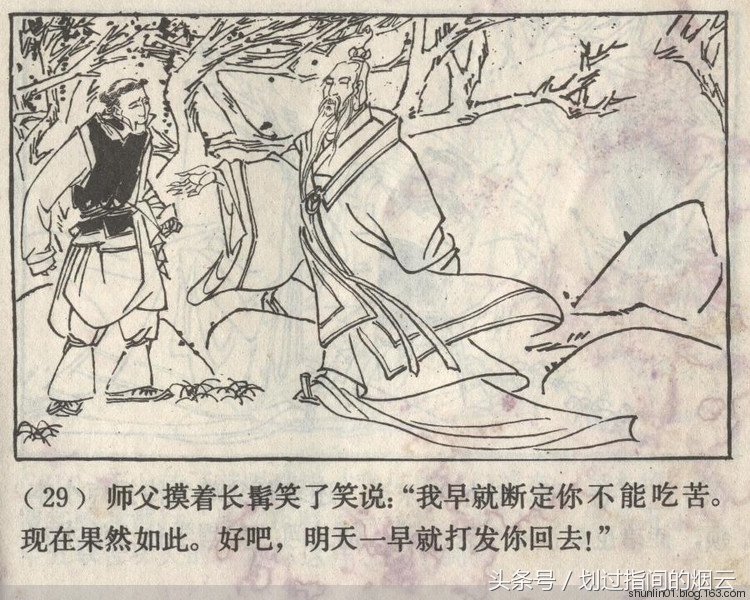 （29）师父摸着长髯笑了笑说：“我早就断定你不能吃苦。
现在果然如此。好吧，明天一早就打发你回去！”
头条号／划过指间的烟云
shunlin01.blog.163.com